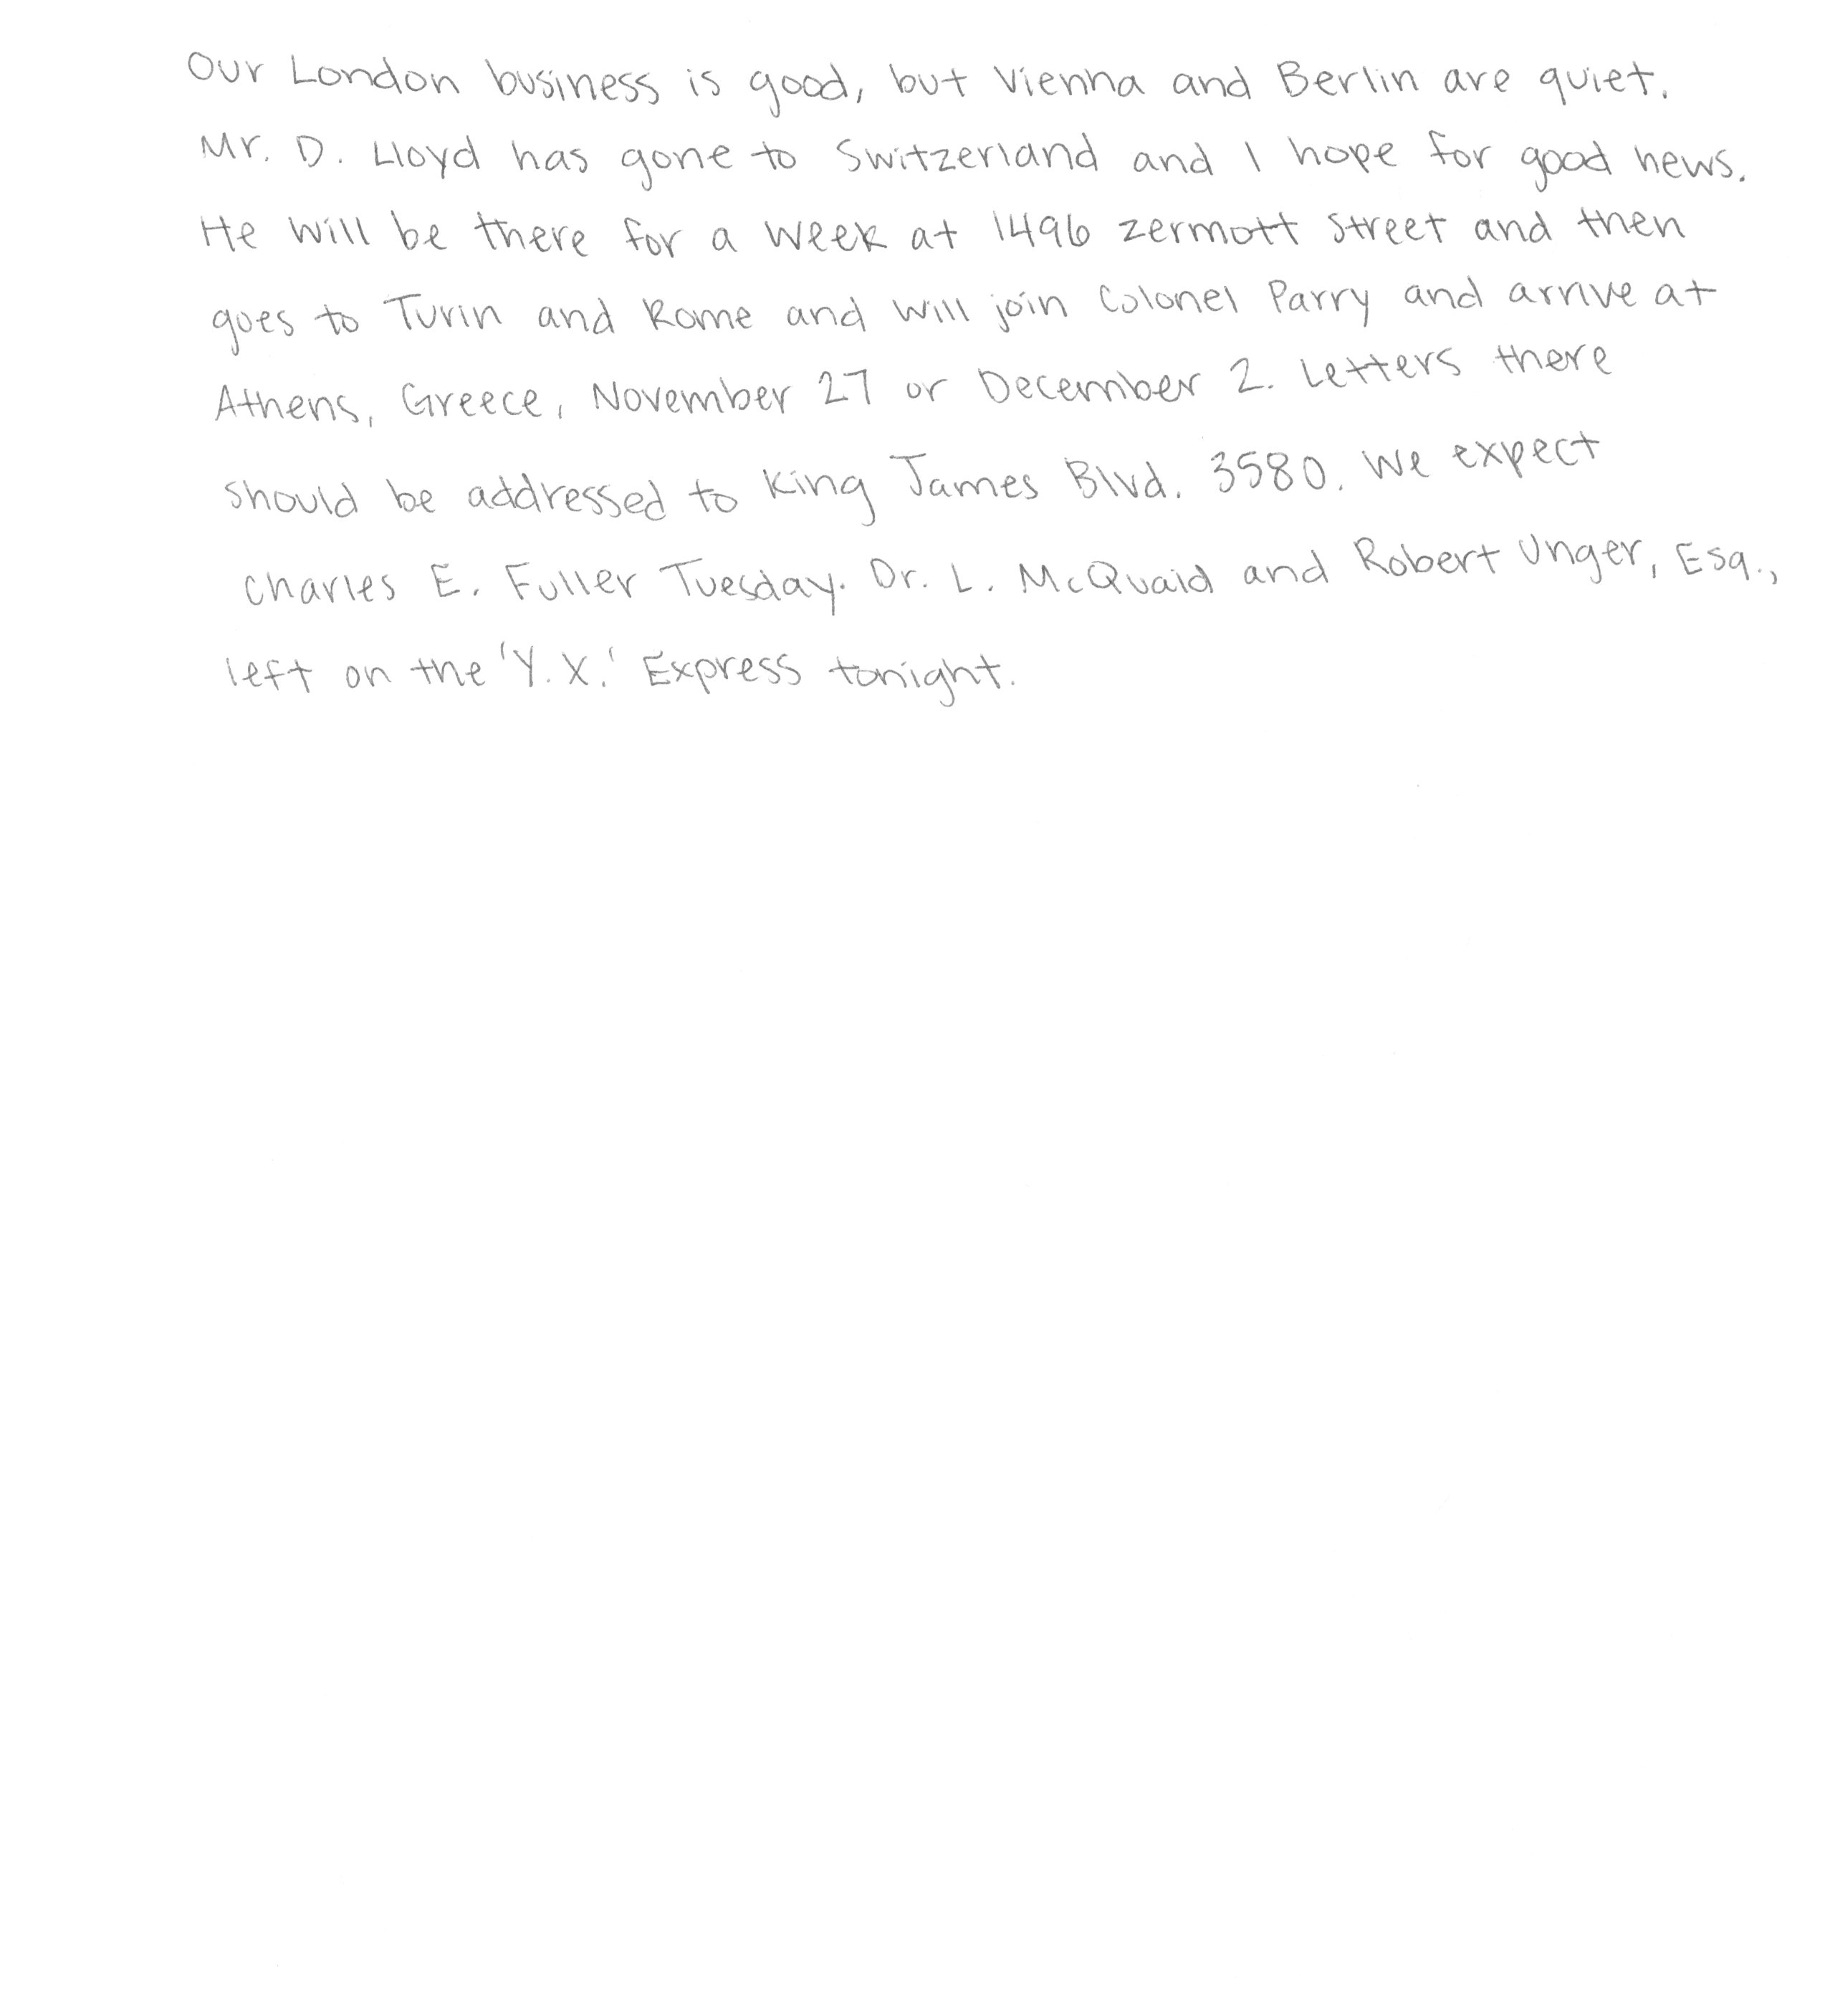 Our London business is good, but Vienna and Berlin are quiet.
Mr. D. Lloyd has gone to Switzerland and I hope for good news.
He will be there for a week at 1496 Zermott Street and then
goes to Turin and Rome and will join Colonel Parry and arrive at
Athens, Greece, November 27 or December 2. Letters there
should be addressed to King James Blvd. 3580. We expect
Charles E. Fuller Tuesday. Dr. L. McQuaid and Robert Unger, Esq.,
left on the 'Y.X.' Express tonight.